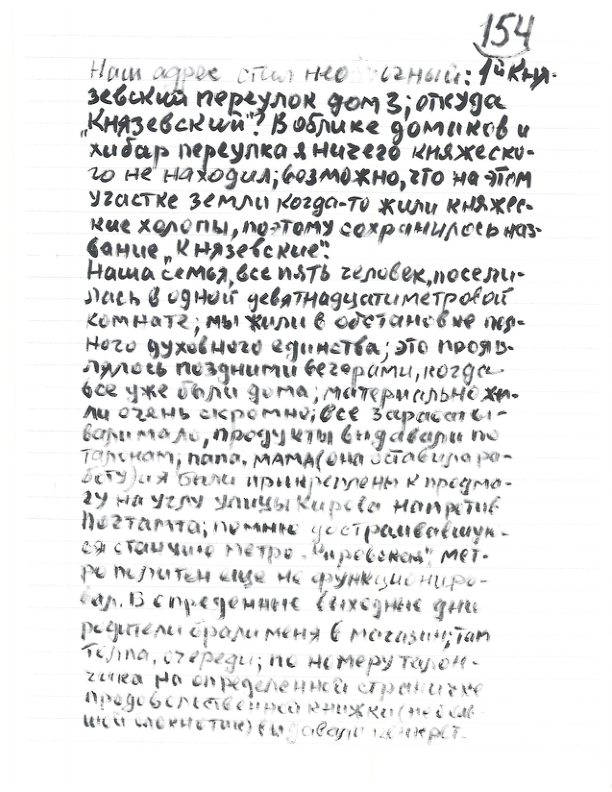 154
Наш адрес стал необычный: 1й Кня-
зевский переулок дом 3; откуда
„Князевский"? В облике домиков и
хибар переулка я ничего княжеско-
го не находил; возможно, что на этом
участке земли когда-то жили княжес-
кие холопы, поэтому сохранилось наз-
вание „Князевские".
Наша семья, все пять человек, посели-
лась в одной девятнадцатиметровой
комнате; мы жили в обстановке пол-
ного духовного единства; это прояв-
лялось поздними вечерами, когда
все уже были дома; материально жи-
ли очень скромно; все зарабаты-
вали мало, продукты выдавали по
талонам; папа, мама (она оставила ра-
боту) и я были прикреплены к продма-
гу на углу улицы Кирова напротив
Почтамта; помню достраивавшую-
ся станцию метро „Кировская", мет-
рополитен еще не функциониро-
вал. В определенные выходные дни
родители брали меня в магазин; там
толпа, очереди; по номеру талон-
чика на определенной страничке
продовольственной книжки (неболь-
шой блокнотик) выдавали конкрет-